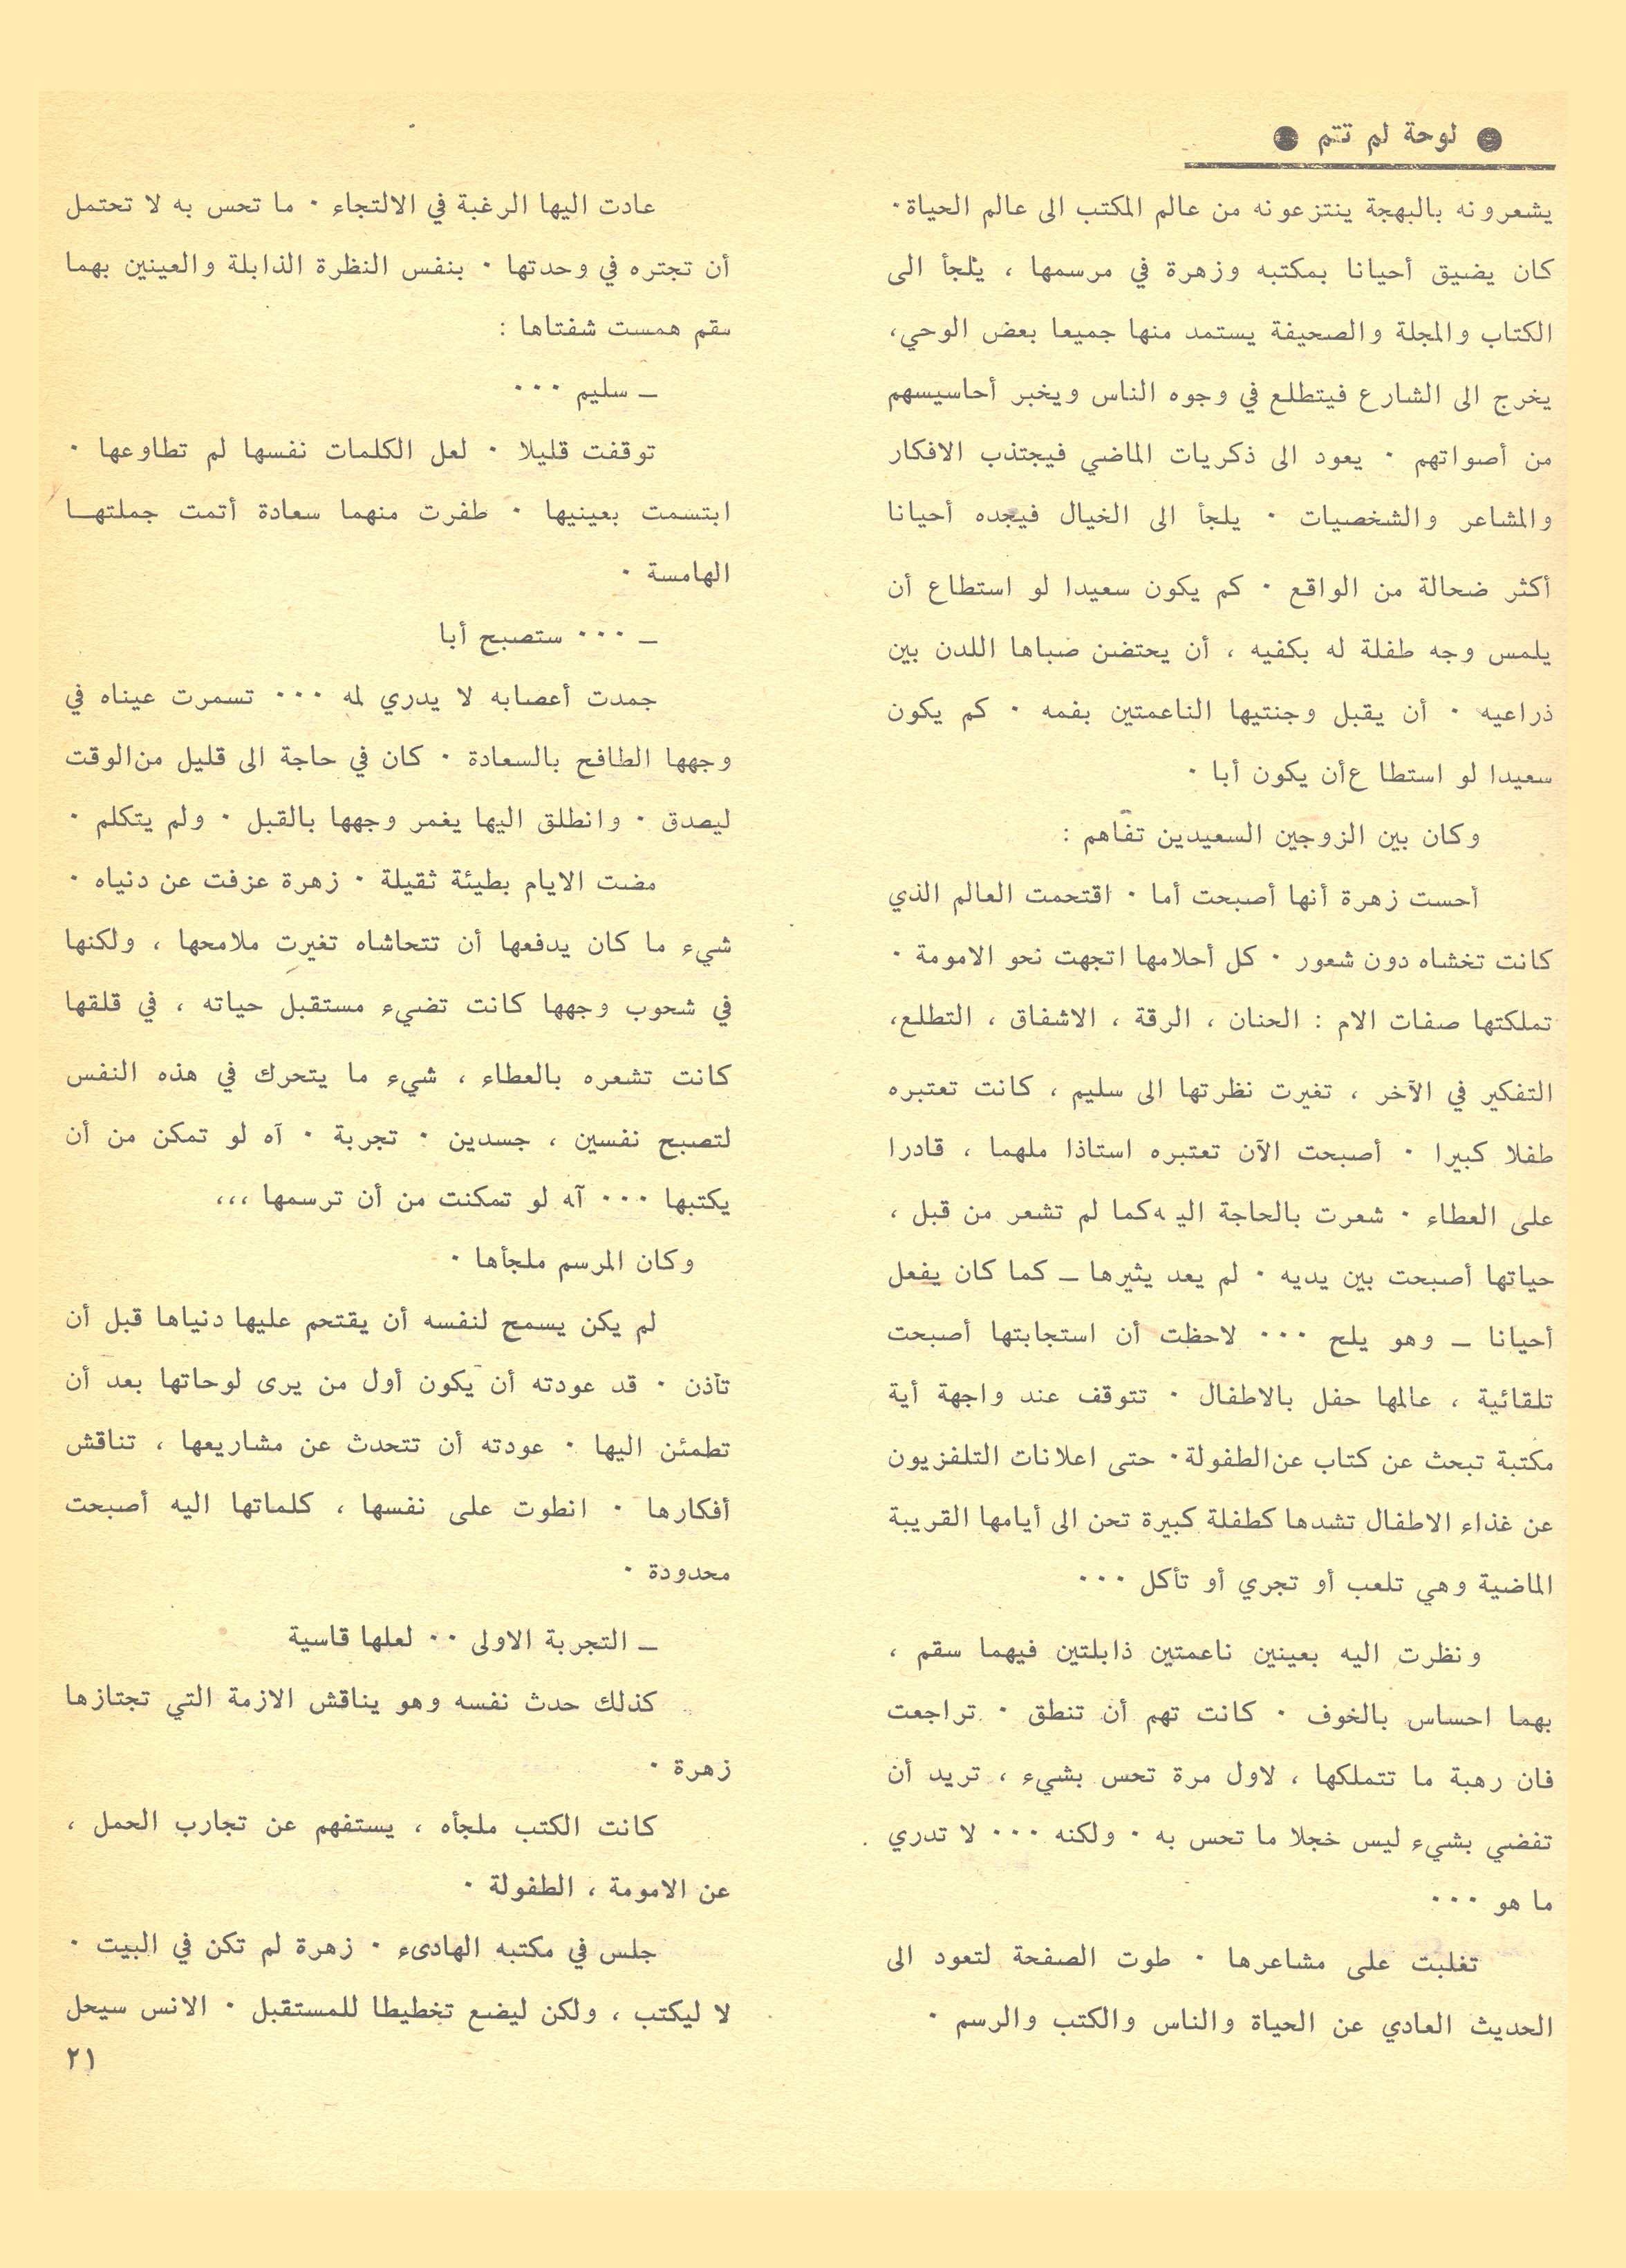 ● لوحة لم تتم ●
يشعرونه بالبهجة ينتزعونه من عالم المكتب الى عالم الحياة٠
كان يضيق أحيانا بمكتبه وزهرة في مرسمها ، يلجأ الى
الكتاب والمجلة والصحيفة يستمد منها جميعا بعض الوحي،
يخرج الى الشارع فيتطلع في وجوه الناس ويخبر أحاسيسهم
من أصواتهم ٠ يعود الى ذكريات الماضي فيجتذب الافكار
والمشاعر والشخصيات ٠ يلجأ الى الخيال فيجده أحيانا
أكثر ضحالة من الواقع ٠ كم يكون سعيدا لو استطاع أن
يلمس وجه طفلة له بكفيه ، أن يحتضن صباها اللدن بين
ذراعيه ٠ أن يقبل وجنتيها الناعمتين بفمه ٠ كم يكون
سعيدا لو استطا ع أن يكون أبا ٠
وكان بين الزوجين السعيدين تفاهم :
أحست زهرة أنها أصبحت أما ٠ اقتحمت العالم الذي
كانت تخشاه دون شعور ٠ كل أحلامها اتجهت نحو الامومة ٠
تملكتها صفات الام : الحنان ، الرقة ، الاشفاق ، التطلع،
التفكير في الآخر ، تغيرت نظرتها الى سليم ، كانت تعتبره
طفلا كبيرا ٠ أصبحت الآن تعتبره استاذا ملهما ، قادرا
على العطاء ٠ شعرت بالحاجة اليه كما لم تشعر من قبل ،
حياتها أصبحت بين يديه ٠ لم يعد يثيرها ــ كما كان يفعل
أحيانا ــ وهو يلح ٠٠٠ لاحظت أن استجابتها أصبحت
تلقائية ، عالمها حفل بالاطفال ٠ تتوقف عند واجهة أية
مكتبة تبحث عن كتاب عن الطفولة٠ حتى اعلانات التلفزيون
عن غذاء الاطفال تشدها كطفلة كبيرة تحن الى أيامها القريبة
الماضية وهي تلعب أو تجري أو تأكل ٠٠٠
ونظرت اليه بعينين ناعمتين ذابلتين فيهما سقم ،
بهما احساس بالخوف ٠ كانت تهم أن تنطق ٠ تراجعت
فان رهبة ما تتملكها ، لاول مرة تحس بشيء ، تريد أن
تفضي بشيء ليس خجلا ما تحس به ٠ ولكنه ٠٠٠ لا تدري
ما هو ٠٠٠
تغلبت على مشاعرها ٠ طوت الصفحة لتعود الى
الحديث العادي عن الحياة والناس والكتب والرسم ٠
عادت اليها الرغبة في الالتجاء ٠ ما تحس به لا تحتمل
أن تجتره في وحدتها ٠ بنفس النظرة الذابلة والعينين بهما
سقم همست شفتاها :
ــ سليم ٠٠٠
توقفت قليلا ٠ لعل الكلمات نفسها لم تطاوعها ٠
ابتسمت بعينيها ٠ طفرت منهما سعادة أتمت جملتهــا
الهامسة ٠
ــ ٠٠٠ ستصبح أبا
جمدت أعصابه لا يدري لمه ٠٠٠ تسمرت عيناه في
وجهها الطافح بالسعادة ٠ كان في حاجة الى قليل من الوقت
ليصدق ٠ وانطلق اليها يغمر وجهها بالقبل ٠ ولم يتكلم ٠
مضت الايام بطيئة ثقيلة ٠ زهرة عزفت عن دنياه ٠
شيء ما كان يدفعها أن تتحاشاه تغيرت ملامحها ، ولكنها
في شحوب وجهها كانت تضيء مستقبل حياته ، في قلقها
كانت تشعره بالعطاء ، شيء ما يتحرك في هذه النفس
لتصبح نفسين ، جسدين ٠ تجربة ٠ آه لو تمكن من أن
يكتبها ٠٠٠ آه لو تمكنت من أن ترسمها ،،،
وكان المرسم ملجأها ٠
لم يكن يسمح لنفسه أن يقتحم عليها دنياها قبل أن
تأذن ٠ قد عودته أن يكون أول من يرى لوحاتها بعد أن
تطمئن اليها ٠ عودته أن تتحدث عن مشاريعها ، تناقش
أفكارها ٠ انطوت على نفسها ، كلماتها اليه أصبحت
محدودة ٠
ــ التجربة الاولى ٠٠ لعلها قاسية
كذلك حدث نفسه وهو يناقش الازمة التي تجتازها
زهرة ٠
كانت الكتب ملجأه ، يستفهم عن تجارب الحمل ،
عن الامومة ، الطفولة ٠
جلس في مكتبه الهادىء ٠ زهرة لم تكن في البيت ٠
لا ليكتب ، ولكن ليضع تخطيطا للمستقبل ٠ الانس سيحل
٢١